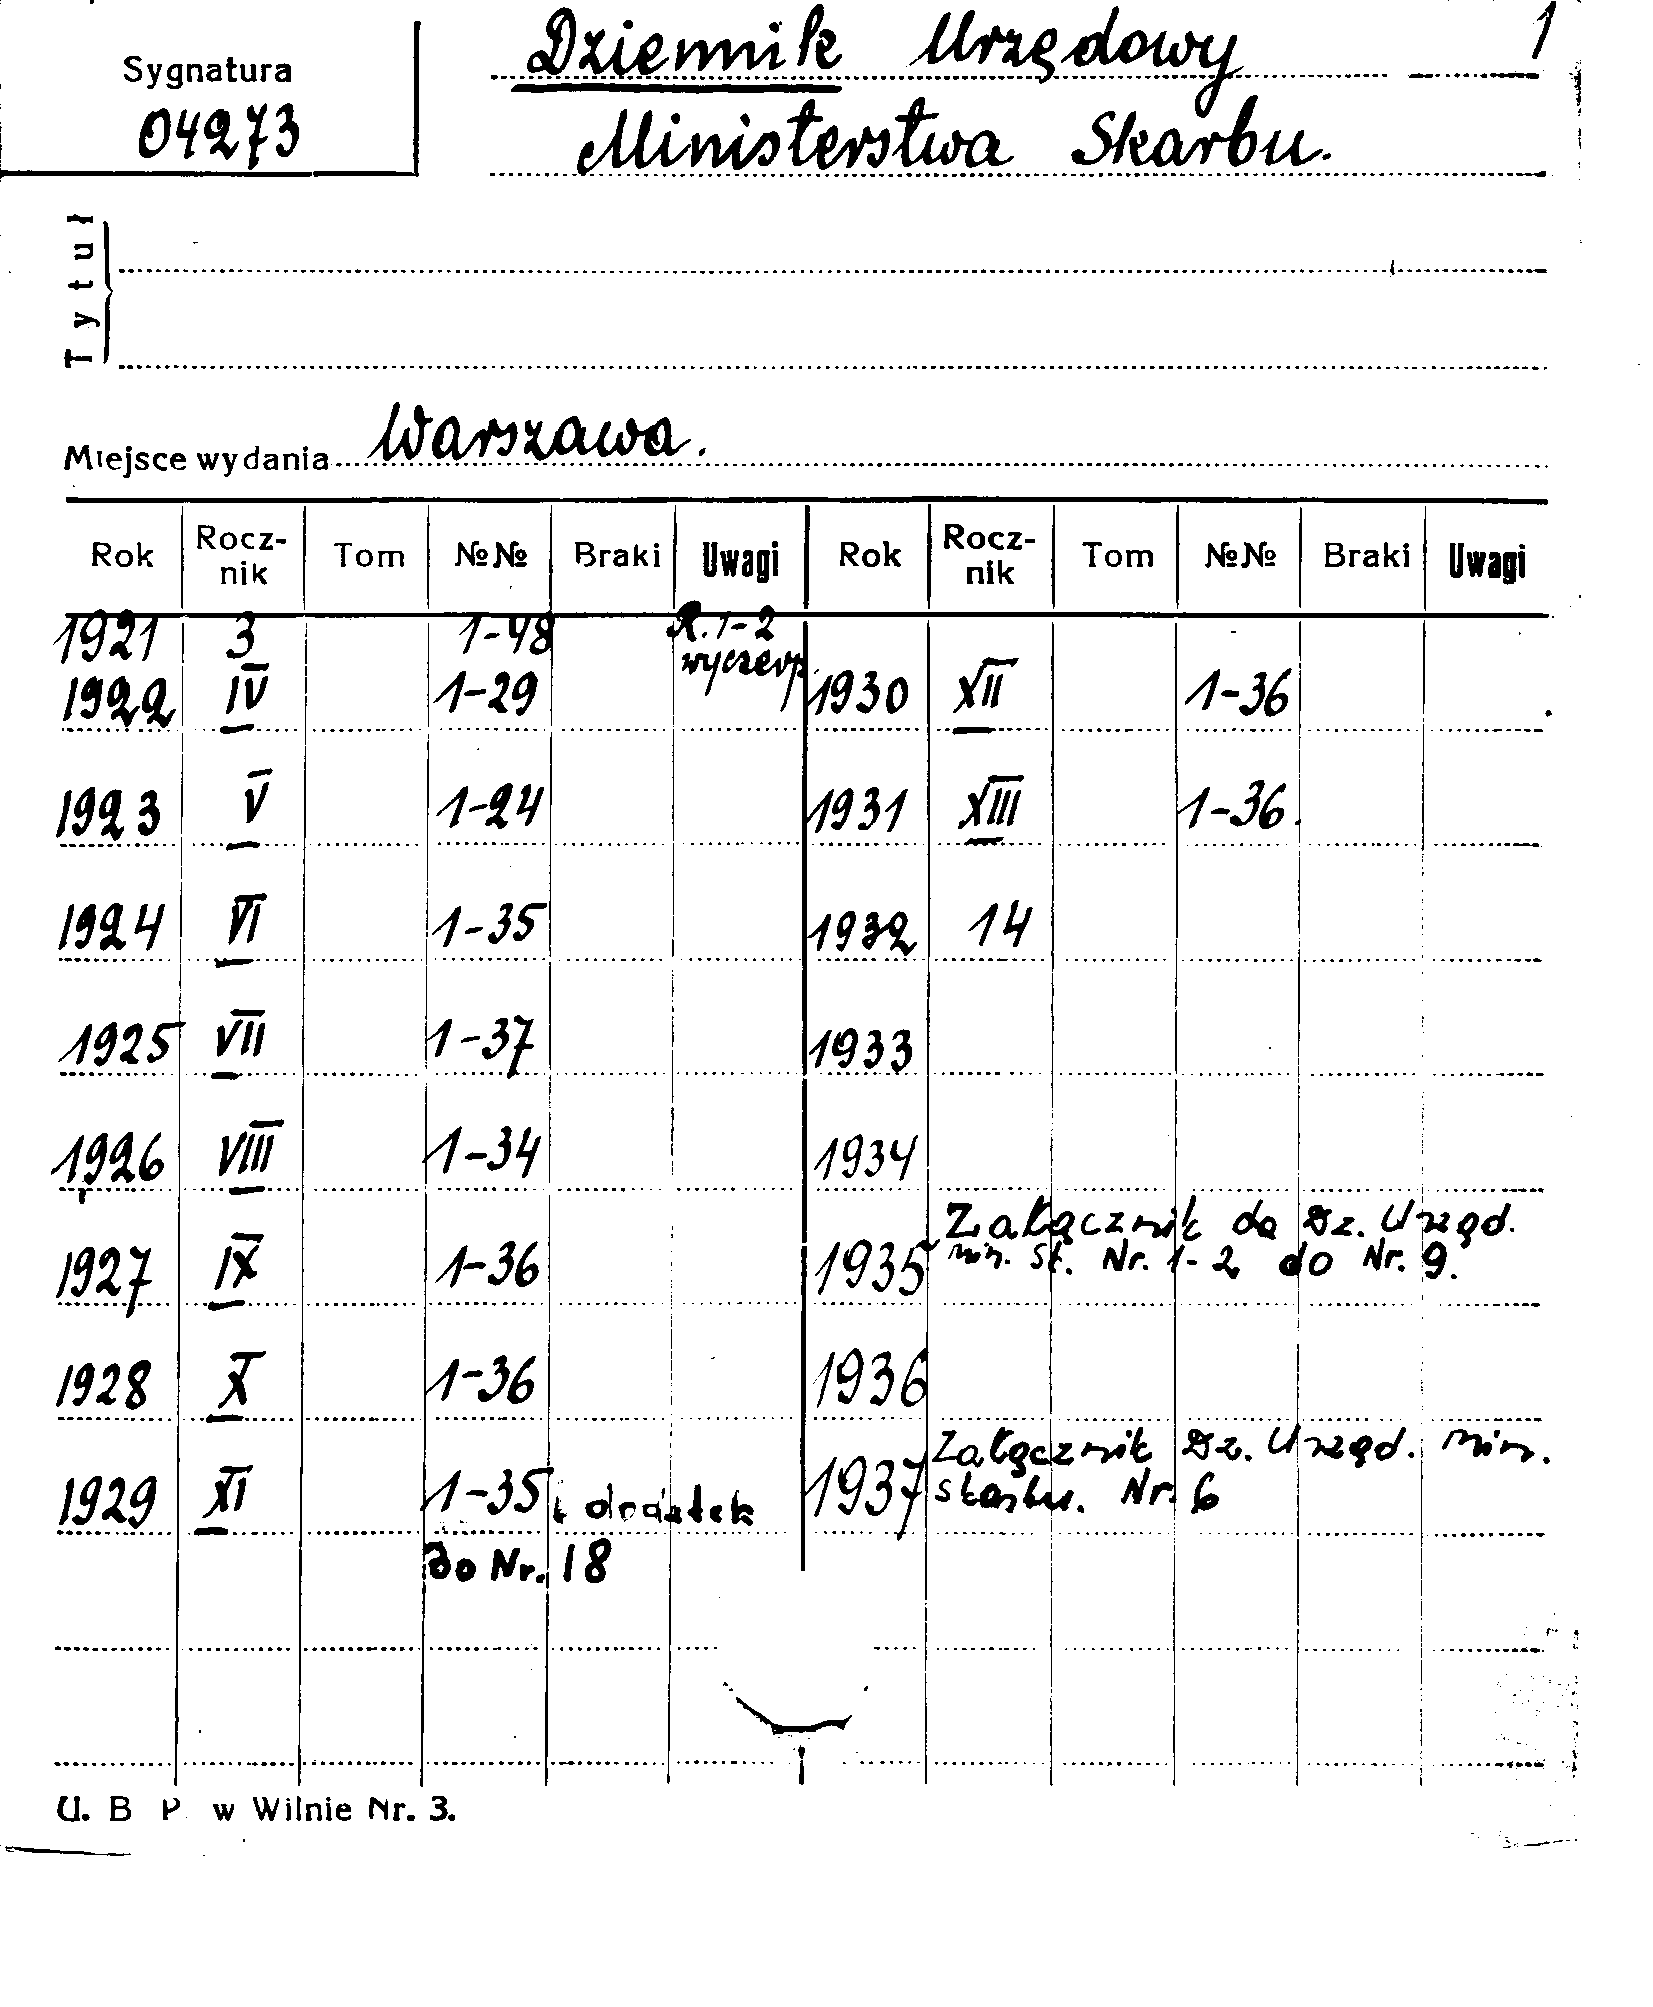 1
Sygnatura
04273
Dziennik Urzędowy
Ministerstwa Skarbu.
Tytuł
Miejsce wydania Warszawa.
Rok Rocz-nik Tom №№ Braki Uwagi Rok Rocz-nik Tom №№ Braki Uwagi
1921 3 1-48 R. 1-2
wyczerp.
1922 IV 1-29 1930 XII 1-36
1923 V 1-24 1931 XIII 1-36.
1924 VI 1-35 1932 14
1925 VII 1-37 1933
1926 VIII 1-34 1934
1927 IX 1-36 1935 Załącznik do Dz. Urzęd.
min. Sk. Nr. 1-2 do Nr. 9.
1928 X 1-36 1936
1929 XI 1-35 i dodatek 1937 Załącznik Dz. Urzęd. Min.
Skarbu. Nr. 6
do Nr. 18
U. B P. w Wilnie Nr. 3.